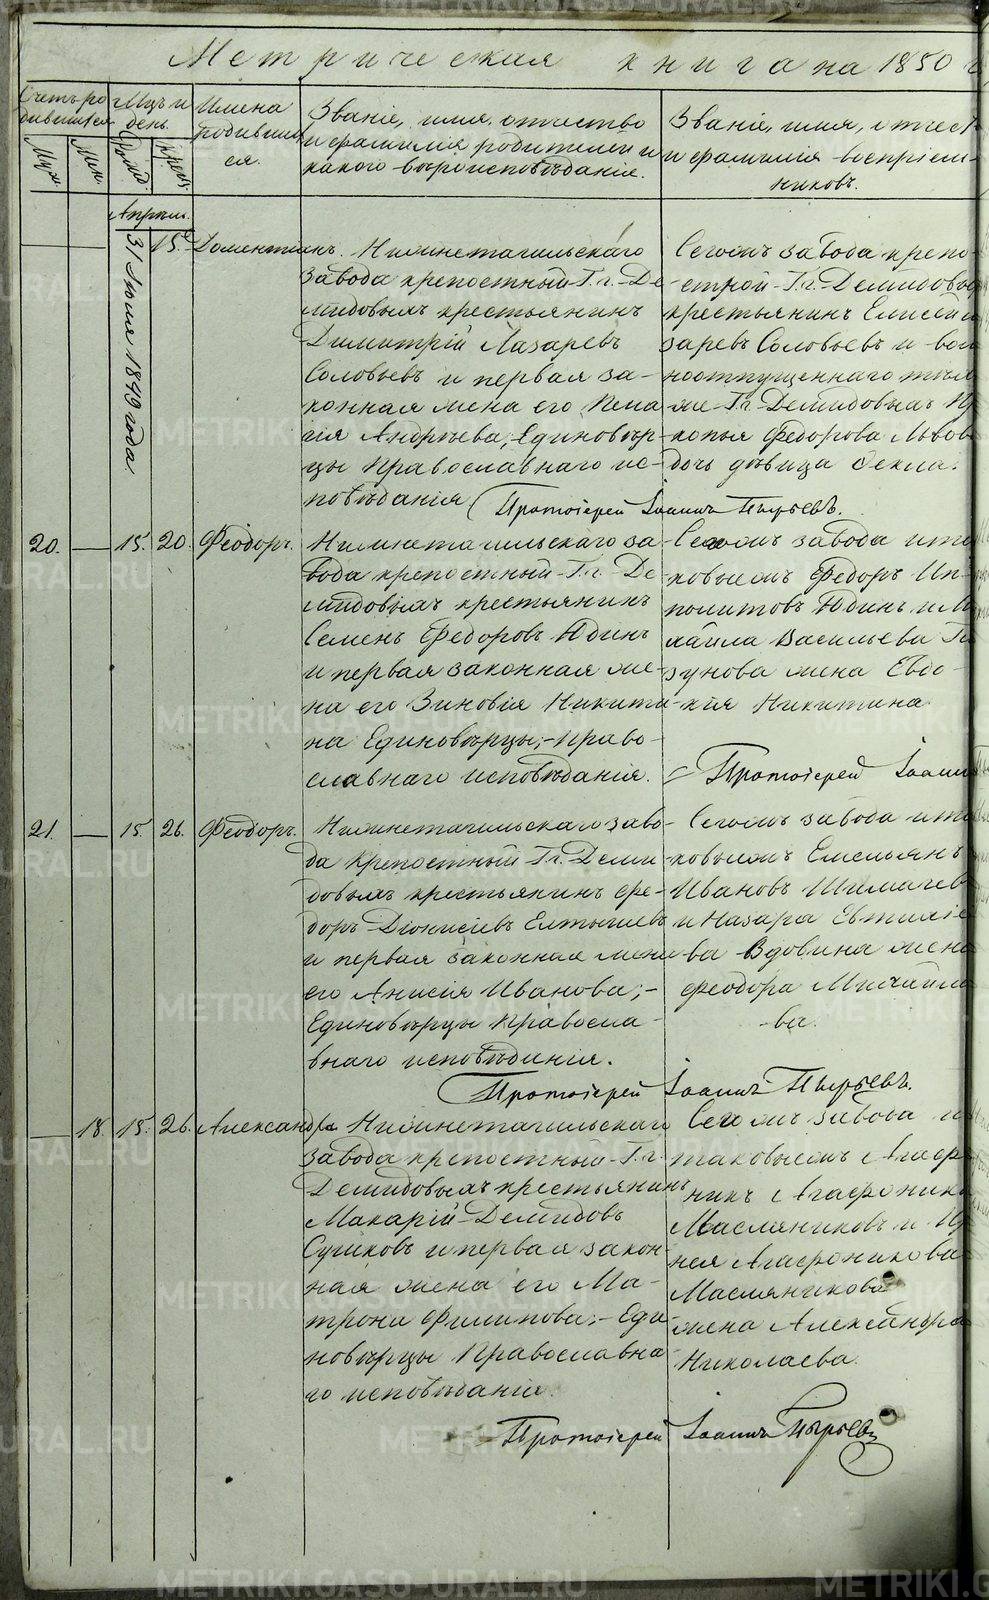 Метрическая книга на 1850 г
Счетъ родившихся
Муж.
Жен.
Мцъ и день.
Рожд.
Крещ.
Имена родившихся.
Званіе, имя, отчество
и фамилія родителей и
какого вѣроисповѣданія.
Званіе, имя, отчест
и фамилія воспріем-
никовъ.
Апрѣль.
31 Іюля 1849 года.
15.
Доментіанъ.
Нижнетагильскаго
завода крепостный Г.г. Де-
мидовыхъ крестьянинъ
Димитрій Лазаревъ
Соловьевъ и первая за-
конная жена его Пела-
гія Андреева, Единовѣр-
цы Православнаго ис-
повѣданія
Сегожъ завода крепо-
стной Г.г. Демидовых
крестьянинъ Елисей
заревъ Соловьевъ и вол
ноотпущеннаго
Г.г. Демидовыхъ
копья Федорова Львов
дочь дѣвица Фекла.
Протоіерей Іоаннъ Пырьевъ.
20. — 15. 20. Феодоръ.
Нижнетагильскаго за-
вода крепостный Г.г. Де-
мидовыхъ крестьянинъ
Семенъ Федоровъ Юдинъ
и первая законная же-
на его Зиновія Никити-
на Единовѣрцы,- Право-
славнаго исповѣданія.
Сегожъ завода и та
ковыежъ Федоръ Ип-
политовъ Юдинъ и Ми
хаила Васильева
зунова жена Евдо-
кія Никитина
Протоіерей Іоаннъ
21. — 15. 26. Феодоръ.
Нижнетагильскаго заво-
да крепостный Г.г. Деми-
довыхъ крестьянинъ Фе-
доръ Діонисіевъ Елтышевъ
и первая законная жена
его Анисія Иванова;-
Единовѣрцы Правосла-
внаго исповѣданія.
Сегожъ завода и та
ковыежъ Емельянъ
Ивановъ
и Назара Евтихіе
ва Вдовина жена
Феодора Михайло
ва.
Протоіерей Іоаннъ Пырьевъ.
— 18. 15. 26. Александра
Нижнетагильскаго
завода крепостный Г.г.
Демидовыхъ крестьянинъ
Макарій Демидовъ
Сушковъ и первая закон-
ная жена его Ма-
трона Филипова;- Еди-
новѣрцы Православна-
го исповѣданія.
Сегожъ завода и
таковыежъ Агаф
никъ Агафоник
Масляниковъ и Ир
нея Агафоникова
Масляникова
жена Александра
Николаева.
Протоіерей Іоаннъ Пырьевъ
METRIKI.GASO-URAL.RU